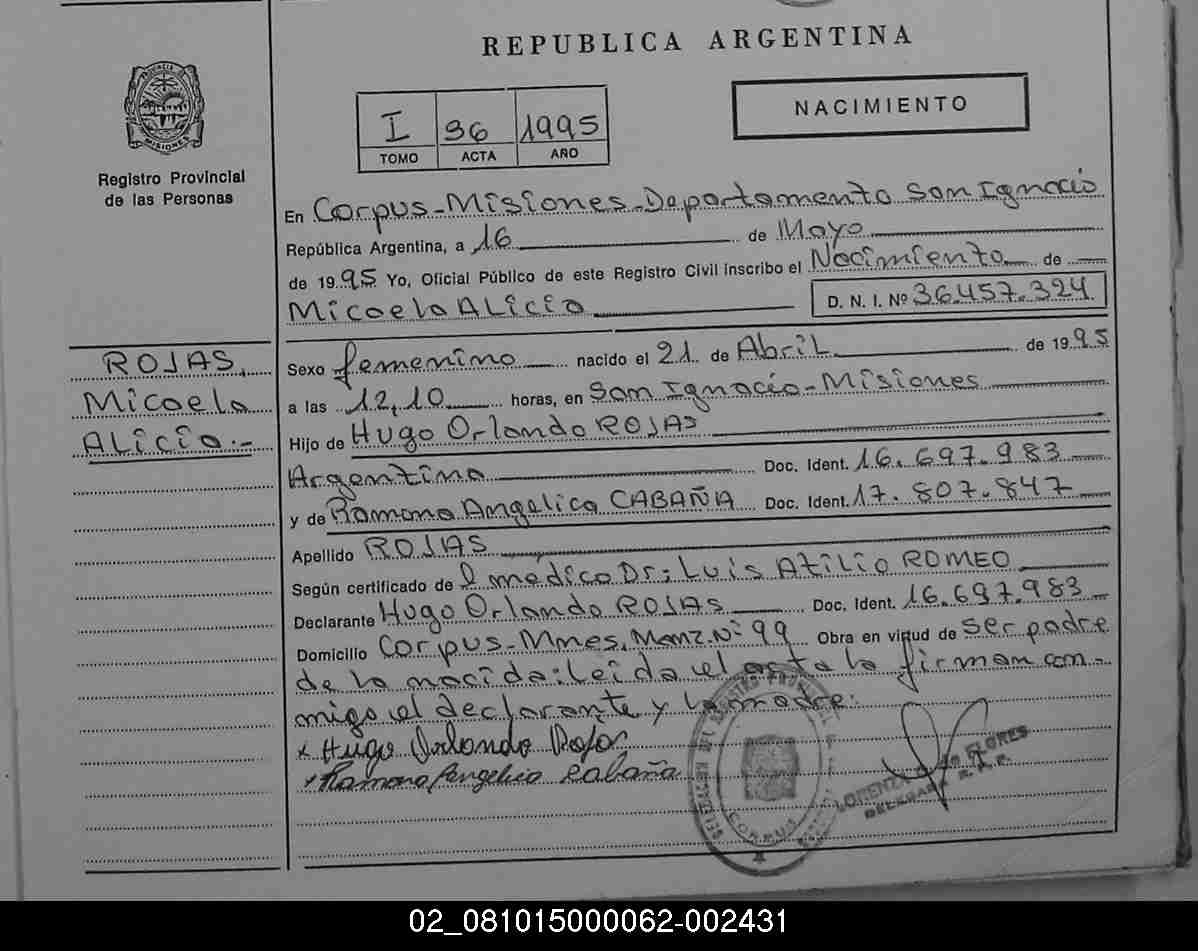 REPUBLICA ARGENTINA
PROVINCIA
MISIONES
Registro Provincial
de las Personas
I 36 1995
TOMO ACTA AÑO
NACIMIENTO
En Corpus-Misiones-Departamento San Ignacio
República Argentina, a 16 de Mayo
de 1995 Yo, Oficial Público de este Registro Civil inscribo el Nacimiento de
Micaela ALicia D. N. I. Nº 36.457.324
ROJAS,
Micaela
ALicia.-
Sexo femenino nacido el 21 de AbriL de 1995
a las 12,10 horas, en San Ignacio-Misiones
Hijo de Hugo Orlando ROJAS
Argentino Doc. Ident. 16.697.983
y de Ramona Angelica CABAÑA Doc. Ident. 17.807.847
Apellido ROJAS
Según certificado de l médico Dr: Luis Atilio ROMEO
Declarante Hugo Orlando ROJAS Doc. Ident. 16.697.983
Domicilio Corpus-Mnes, Manz. Nº 99 Obra en virtud de ser padre
de la nacida: Leida el acta la firman con-
migo el declarante y la madre:
x Hugo Orlando Rojas
x Ramona Angelica Cabaña
CORPUS
FLORES
02_081015000062-002431